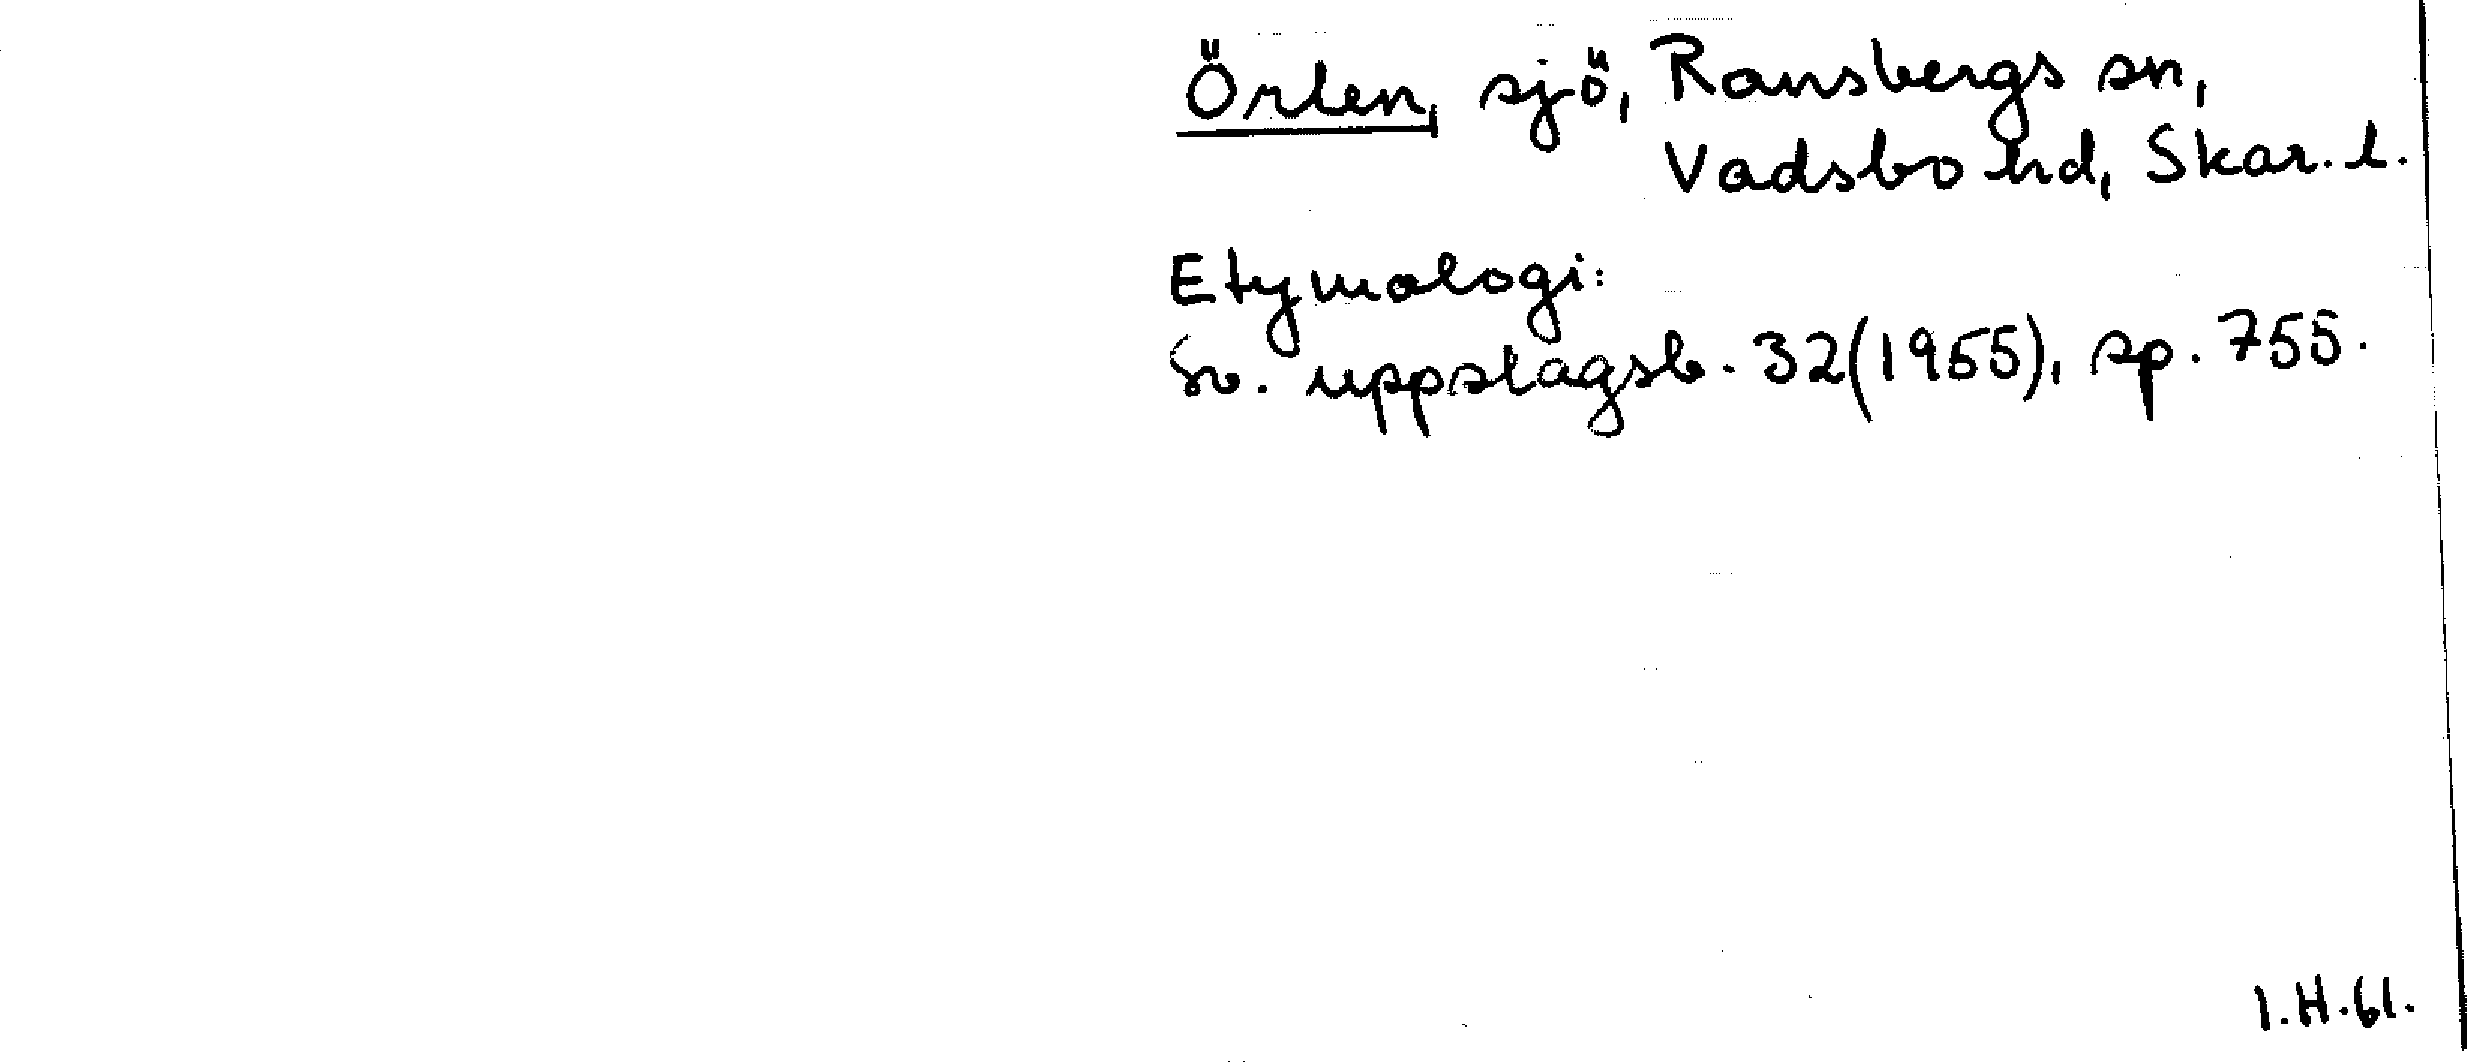 Örlen, sjö, Ransbergs sn,
Vadsbo hd, Skar. l.
Etymologi:
Sv. uppslagsb. 32(1955), sp. 755.
I.H.61.